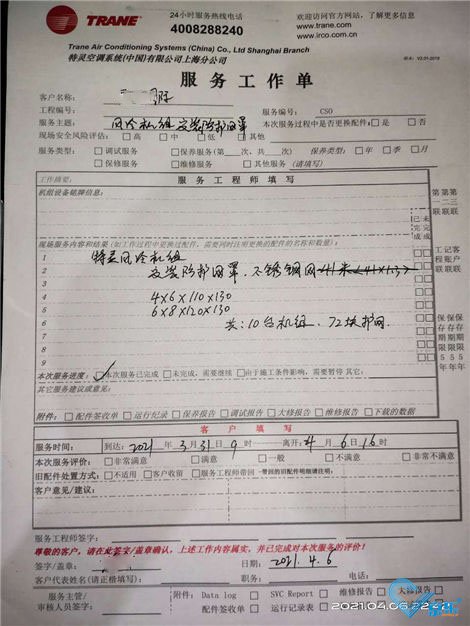 TRANE
24小时服务热线电话
4008288240
欢迎访问官方网站，了解更多
www.trane.com
www.irco.com.cn
Trane Air Conditioning Systems (China) Co., Ltd Shanghai Branch
特灵空调系统(中国)有限公司上海分公司
版本: V2.01-2019
服务工作单
客户名称:
工程编号: 服务编号: CSO
服务主题: 风冷机组安装防护网罩 本次服务过程中是否更换配件: □是 □否
现场安全风险评估: □高 □中 □低 □其他
服务类型: □调试服务 □保养服务(第 次、共 次) 保养类型: □年 □季 □月
□保修服务 □维修服务 □其他服务 (请填写)
工作摘要: 服务工程师填写
机组设备铭牌信息:
已完成
未完成
第一联
第二联
第三联
现场服务内容和结果(如工作过程中更换过配件，需要同时注明更换的配件的名称和数量):
1 特灵风冷机组
2 安装防护网罩.不锈钢网
3
4 4×6×110×130
5 6×8×120×130
6 共:10台机组、72块护网.
7
8
9
本次服务进度: ☑本次服务已完成 □未完成，需要继续 □由于施工条件影响，需要暂停 其它:
其它服务建议或意见:
附件: □配件签收单 □运行纪录 □保养报告 □调试报告 □大修报告 □维修报告 □下载的数据
客户填写
服务时间: 到达: 2021年3月31日9时——离开:4月6日16时
本次服务评价: □非常满意 □满意 □一般 □不满意 □非常不满意
旧配件处置方式: □不适用 □客户收留 □服务工程师带回 --带回的旧配件明细请注明:
客户意见/建议:
服务工程师签字:
尊敬的客户，请在此签字/盖章确认，上述工作内容属实，并已完成对本次服务的评价!
签字/盖章: 日期: 2021.4.6
客户代表姓名(请正楷填写): 职务: 电话:
服务主管/
审核人员签字:
附件: □Data log □SVC Report □大修报告
□配件签收单 □运行记录表
2021.04.06 22:44